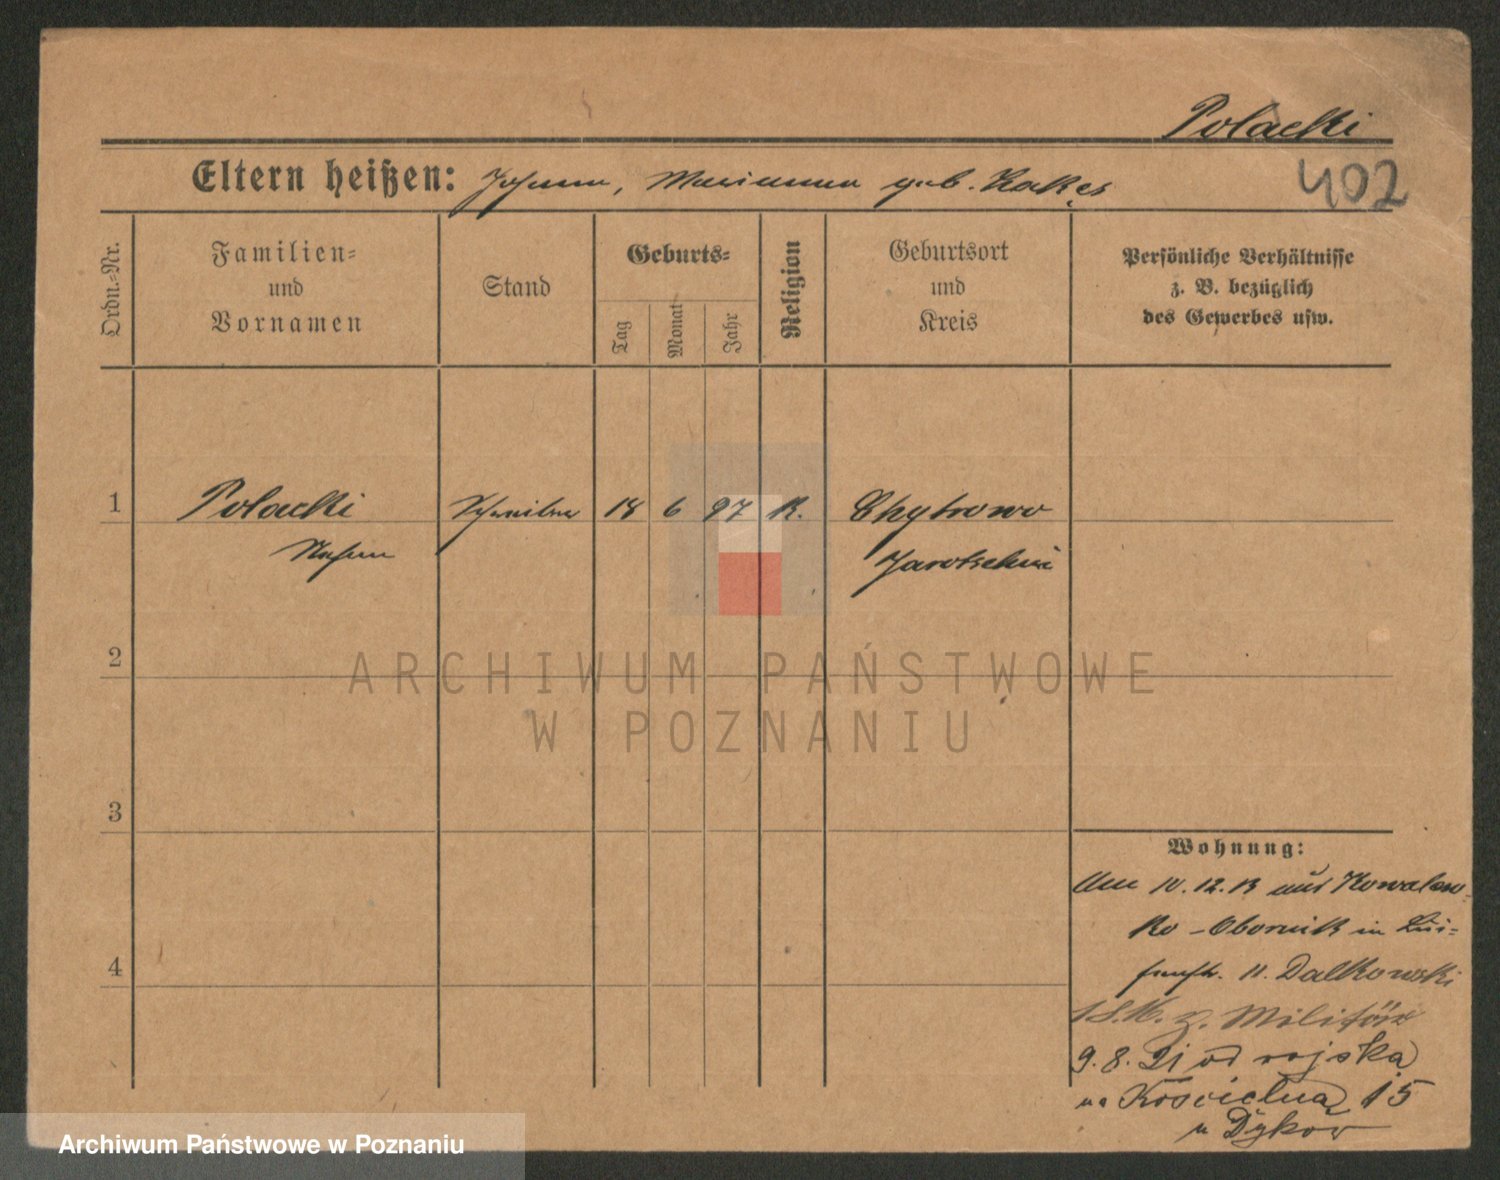 Polacki
402
Eltern heißen: Johann, Marianna geb.
Ordn.=Nr.
Familien=
und
Vornamen
Stand
Geburts=
Tag
Monat
Jahr
Religion
Geburtsort
und
Kreis
Persönliche Verhältnisse
z. B. bezüglich
des Gewerbes usw.
1
Polacki
Schreiber
18
6
97
K.
Chytrowo
Jarotschin
2
3
4
Wohnung:
Am 10.12.13 aus Kowalew-
ko - Obornik in Lui=
senstr. 11. Dalkowski
z. Militär
9. 8. 21 od wojska
na Kościelna 15
u Dyków
ARCHIWUM PAŃSTWOWE
W POZNANIU
Archiwum Państwowe w Poznaniu